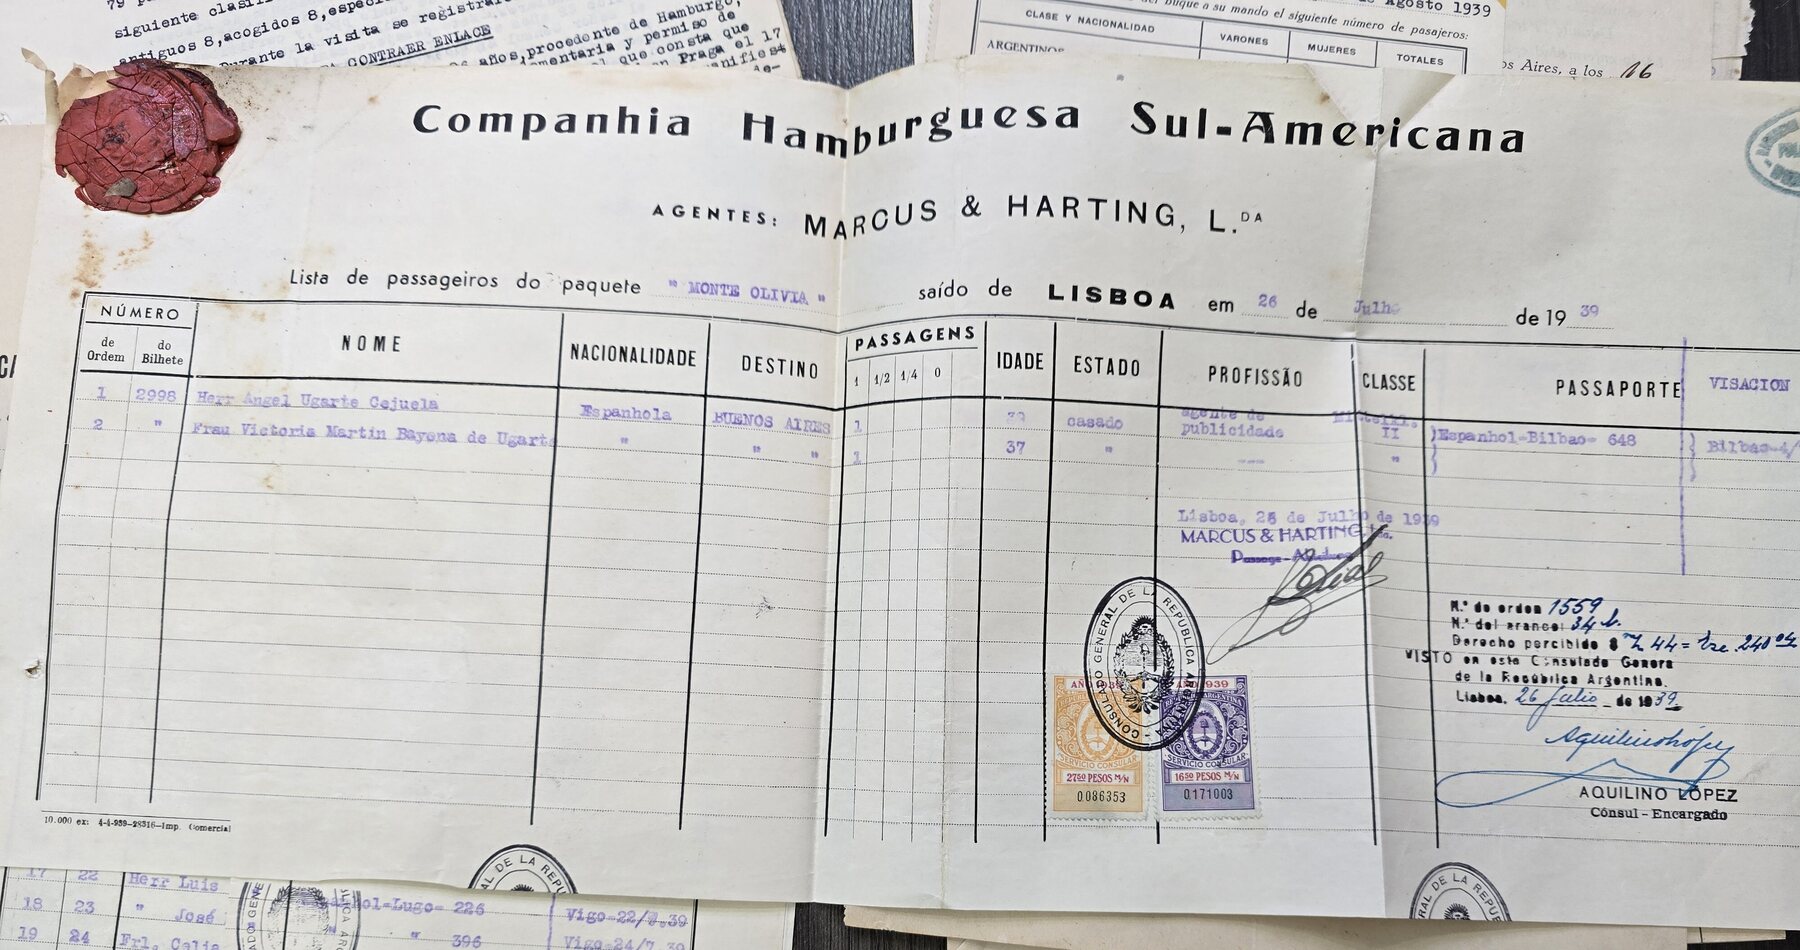 79
siguiente
antiguos 8, acogidos 8,
Durante la visita se
CONTRAER ENLACE
años, procedente de Hamburgo,
y permiso de
el que consta que
en Praga el 17
Agosto 1939
del buque a su mando el siguiente número de pasajeros:
CLASE Y NACIONALIDAD VARONES MUJERES TOTALES
ARGENTINOS
os Aires, a los 16
Companhia Hamburguesa Sul-Americana
AGENTES: MARCUS & HARTING, L.DA
Lista de passageiros do paquete " MONTE OLIVIA " saído de LISBOA em 26 de Julho de 19 39
NÚMERO
de Ordem do Bilhete NOME NACIONALIDADE DESTINO PASSAGENS 1 1/2 1/4 0 IDADE ESTADO PROFISSÃO CLASSE PASSAPORTE VISACION
1 2998 Herr Ángel Ugarte Cejuela Espanhola BUENOS AIRES 1 casado agente de publicidade II Espanhol-Bilbao- 648 Bilbao-4/
2 " Frau Victoria Martin Bayona de Ugarte " " " 1 37 " --- "
Lisboa, 26 de Julho de 1939
MARCUS & HARTING, Lda.
CONSULADO GENERAL DE LA REPUBLICA ARGENTINA
AÑO 1939
SERVICIO CONSULAR
27 50 PESOS M/N
0086353
AÑO 1939
SERVICIO CONSULAR
16 50 PESOS M/N
0171003
N.º de orden 1559
N.º del arancel 34
Derecho percibido $ 44 = 240
VISTO en este Consulado General
de la República Argentina.
Lisboa, 26 Julio de 1939
AQUILINO LÓPEZ
Cónsul - Encargado
10.000 ex: 4-4-939-28316-Imp. Comercial
17 22 Herr Luis
18 23 " José -Lugo- 226 Vigo-22/7.39
19 24 Frl. Celia " 396 Vigo-24/7.39
DE LA
DE LA REPU